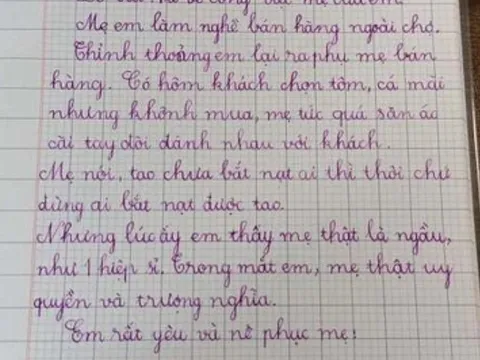 Mẹ em làm nghề bán hàng ngoài chợ.
Thỉnh thoảng em lại ra phụ mẹ bán
hàng. Có hôm khách chọn tôm, cá mãi
nhưng không mua, mẹ tức quá sắn áo
cài tay đòi đánh nhau với khách.
Mẹ nói, tao chưa bắt nạt ai thì thôi chứ
đừng ai bắt nạt được tao.
Nhưng lúc ấy em thấy mẹ thật là ngầu,
như 1 hiệp sĩ. Trong mắt em, mẹ thật uy
quyền và trượng nghĩa.
Em rất yêu và nể phục mẹ!